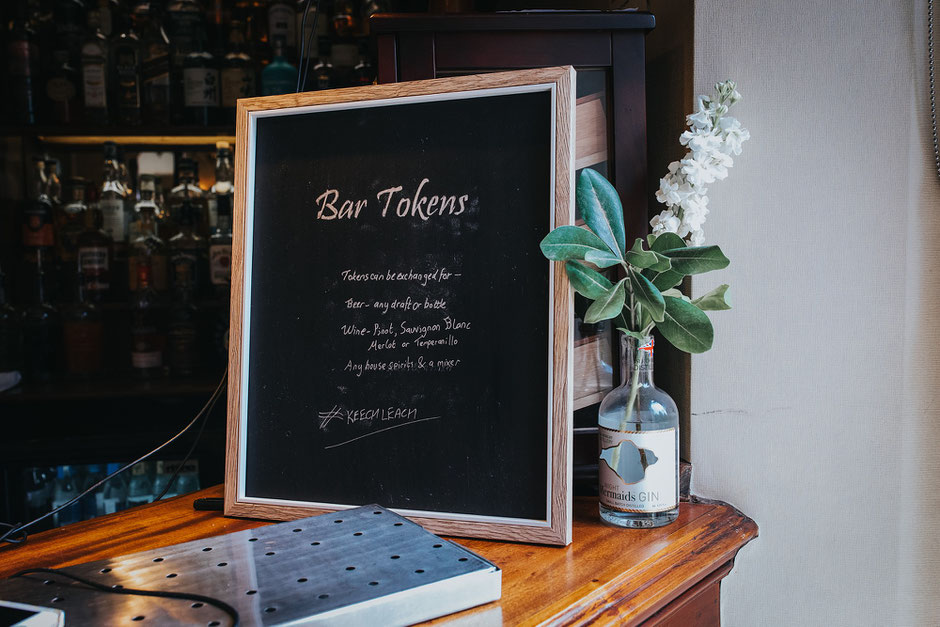 Bar Tokens
Tokens can be exchanged for -
Beer - any draft or bottle
Wine - Pinot, Sauvignon Blanc
Merlot or Tempranillo
Any house spirits & a mixer
# KEECHLEACH
mermaids GIN